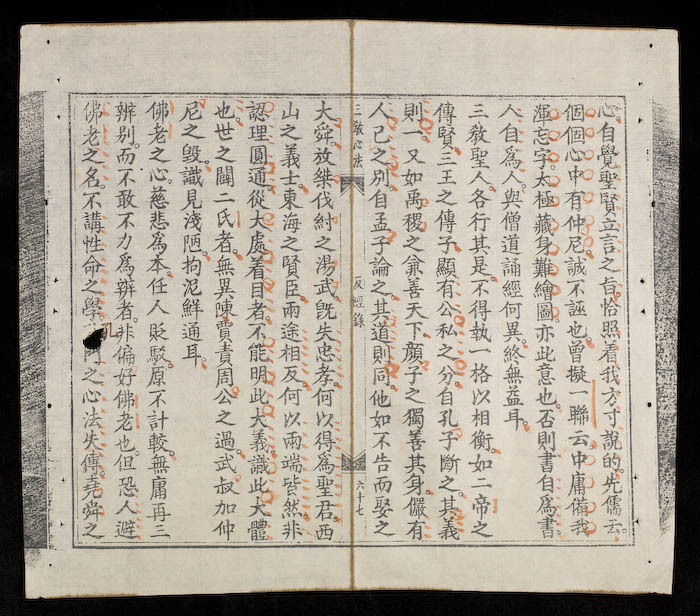 心自覺聖賢立言之旨恰照着我方寸說的先儒云
個個心中有仲尼誠不誣也曾擬一聯云中庸備我
渾忘字太極藏身難繪圖亦此意也否則書自為書
人自為人與僧道誦經何異終無益耳
三教聖人各行其是不得執一格以相衡如二帝之
傳賢三王之傳子顯有公私之分自孔子斷之其義
則一又如禹稷之兼善天下顏子之獨善其身儼有
人己之別自孟子論之其道則同他如不告而娶之
三教心法
反經錄
六十七
大舜放桀伐紂之湯武旣失忠孝何以得為聖君西
山之義士東海之賢臣兩途相反何以兩端皆然非
認理圓通從大處着目者不能明此大義識此大體
也世之闢二氏者無異陳賈責周公之過武叔加仲
尼之毀識見淺陋拘泥鮮通耳
佛老之心慈悲為本任人貶駁原不計較無庸再三
辨別而不敢不力為辨者非偏好佛老也但恐人避
佛老之名不講性命之學 門之心法失傳堯舜之